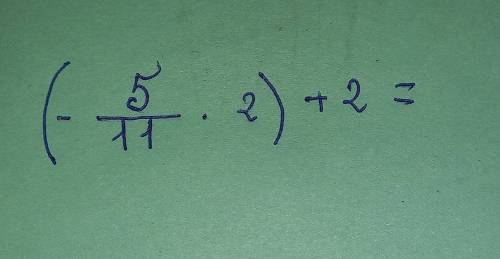 (- 5/11 · 2) + 2 =